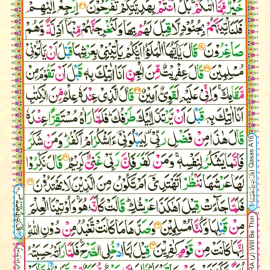 خَيْرٌ مِّمَّآ اٰتٰىكُمْ ۚ بَلْ اَنْتُمْ بِهَدِيَّتِكُمْ تَفْرَحُوْنَ اِرْجِعْ اِلَيْهِمْ
فَلَنَاْتِيَنَّهُمْ بِجُنُوْدٍ لَّا قِبَلَ لَهُمْ بِهَا وَلَنُخْرِجَنَّهُمْ مِّنْهَآ اَذِلَّةً وَّهُمْ
صٰغِرُوْنَ قَالَ يٰٓاَيُّهَا الْمَلَؤُا اَيُّكُمْ يَاْتِيْنِيْ بِعَرْشِهَا قَبْلَ اَنْ يَّاْتُوْنِيْ
مُسْلِمِيْنَ قَالَ عِفْرِيْتٌ مِّنَ الْجِنِّ اَنَا اٰتِيْكَ بِهٖ قَبْلَ اَنْ تَقُوْمَ مِنْ
مَّقَامِكَ ۚ وَاِنِّيْ عَلَيْهِ لَقَوِيٌّ اَمِيْنٌ قَالَ الَّذِيْ عِنْدَهٗ عِلْمٌ مِّنَ الْكِتٰبِ
اَنَا اٰتِيْكَ بِهٖ قَبْلَ اَنْ يَّرْتَدَّ اِلَيْكَ طَرْفُكَ ۗ فَلَمَّا رَاٰهُ مُسْتَقِرًّا عِنْدَهٗ
قَالَ هٰذَا مِنْ فَضْلِ رَبِّيْ ۖ لِيَبْلُوَنِيْٓ ءَاَشْكُرُ اَمْ اَكْفُرُ ۗ وَمَنْ شَكَرَ
فَاِنَّمَا يَشْكُرُ لِنَفْسِهٖ ۚ وَمَنْ كَفَرَ فَاِنَّ رَبِّيْ غَنِيٌّ كَرِيْمٌ قَالَ نَكِّرُوْا
لَهَا عَرْشَهَا نَنْظُرْ اَتَهْتَدِيْٓ اَمْ تَكُوْنُ مِنَ الَّذِيْنَ لَا يَهْتَدُوْنَ
فَلَمَّا جَآءَتْ قِيْلَ اَهٰكَذَا عَرْشُكِ ۗ قَالَتْ كَاَنَّهٗ هُوَ ۚ وَاُوْتِيْنَا الْعِلْمَ
مِنْ قَبْلِهَا وَكُنَّا مُسْلِمِيْنَ وَصَدَّهَا مَا كَانَتْ تَّعْبُدُ مِنْ دُوْنِ اللّٰهِ ۗ
اِنَّهَا كَانَتْ مِنْ قَوْمٍ كٰفِرِيْنَ قِيْلَ لَهَا ادْخُلِي الصَّرْحَ ۚ فَلَمَّا رَاَتْهُ حَسِبَتْهُ